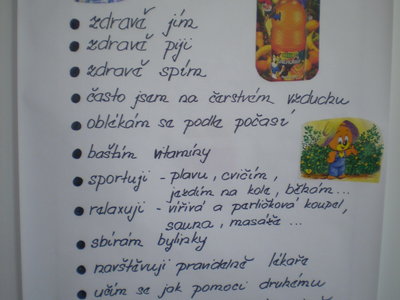 • zdravě jím
• zdravě piji
• zdravě spím
• často jsem na čerstvém vzduchu
• oblékám se podle počasí
• baštím vitamíny
• sportuji - plavu, cvičím,
jezdím na kole, běhám...
• relaxuji - vířivá a perličková koupel,
sauna, masáže...
• sbírám bylinky
• navštěvuji pravidelně lékaře
• učím se jak pomoci druhému